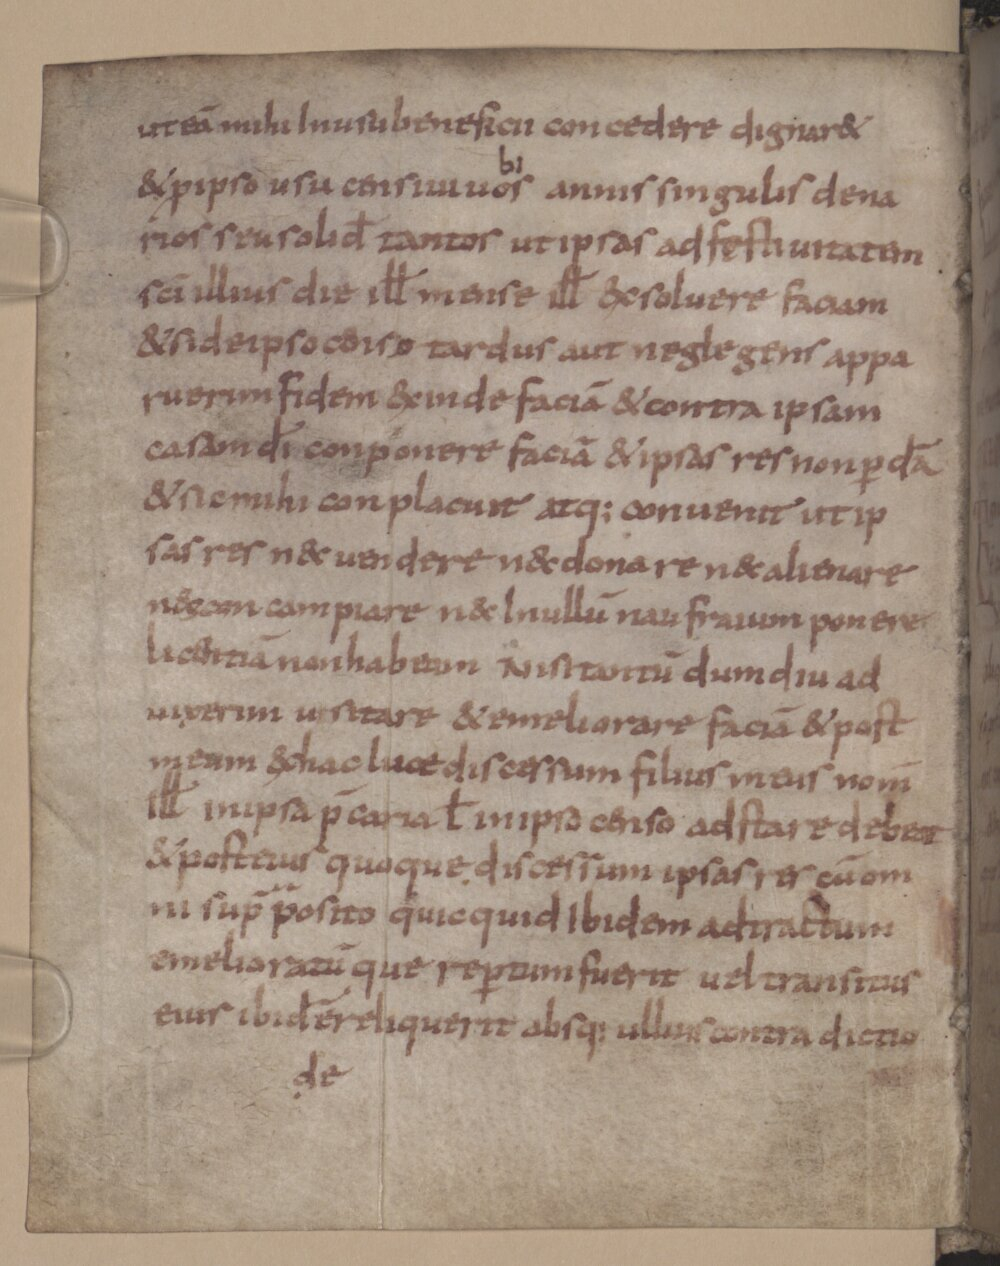 ut eā mihi Inusu beneficii concedere dignar&
& p ipso usu censiui uobis annis singulis dena
rios seu solid̄ tantos ut ipsas ad festiuitatem
sci illius die ill mense ill &xsoluere faciam
& si de ipso censo tardus aut neglegens appa
ruerim fidem &xinde faciā & contra ipsam
casam dī conponere faciā & ipsas res non p dā
& sic mihi conplacuit atq; conuenit ut ip
sas res n&c uendere n&c donare n&c alienare
n&c concampiare n&c Inullū naufraium ponere
licentiā non habeam Nisi tantū dum diu ad
uixerim usitare & emeliorare faciā & post
meum &hac luce discessum filius meus nom̄
ill in ipsa p̄caria ł in ipso censo adstare debeat
& post eius quoque discessum ipsas res cū om
ni sup̄ p̄osito quicquid Ibidem adtractum
emelioratū que reptum fuerit uel transitus
eius ibidē reliquerit absq; ullius contradictio
de